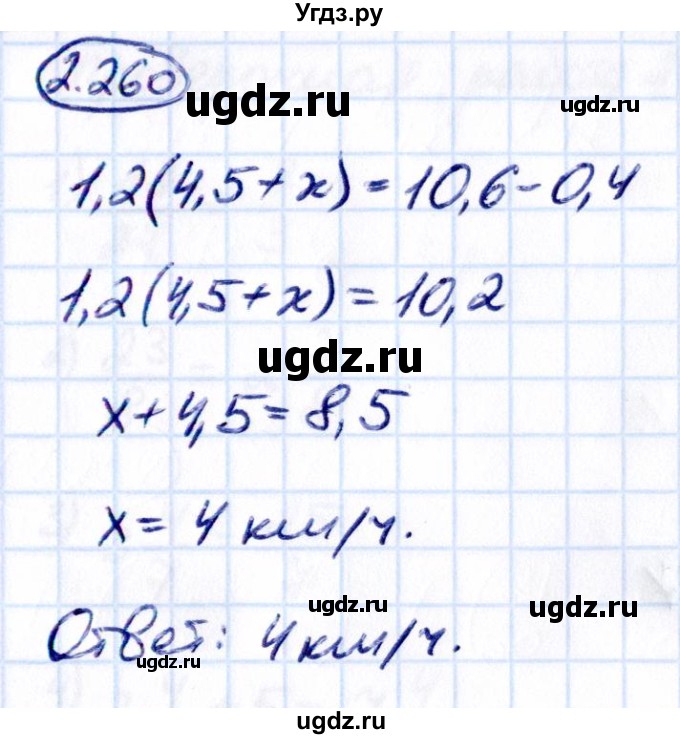 Угдз.ру
2.260
ugdz.ru
ugdz.ru
1,2(4,5+x)=10,6-0,4
1,2(4,5+x)=10,2
ugdz.ru
ugdz.ru
x+4,5=8,5
x=4 км/ч.
ugdz.ru
ugdz.ru
Ответ: 4 км/ч.
ugdz.ru
ugdz.ru